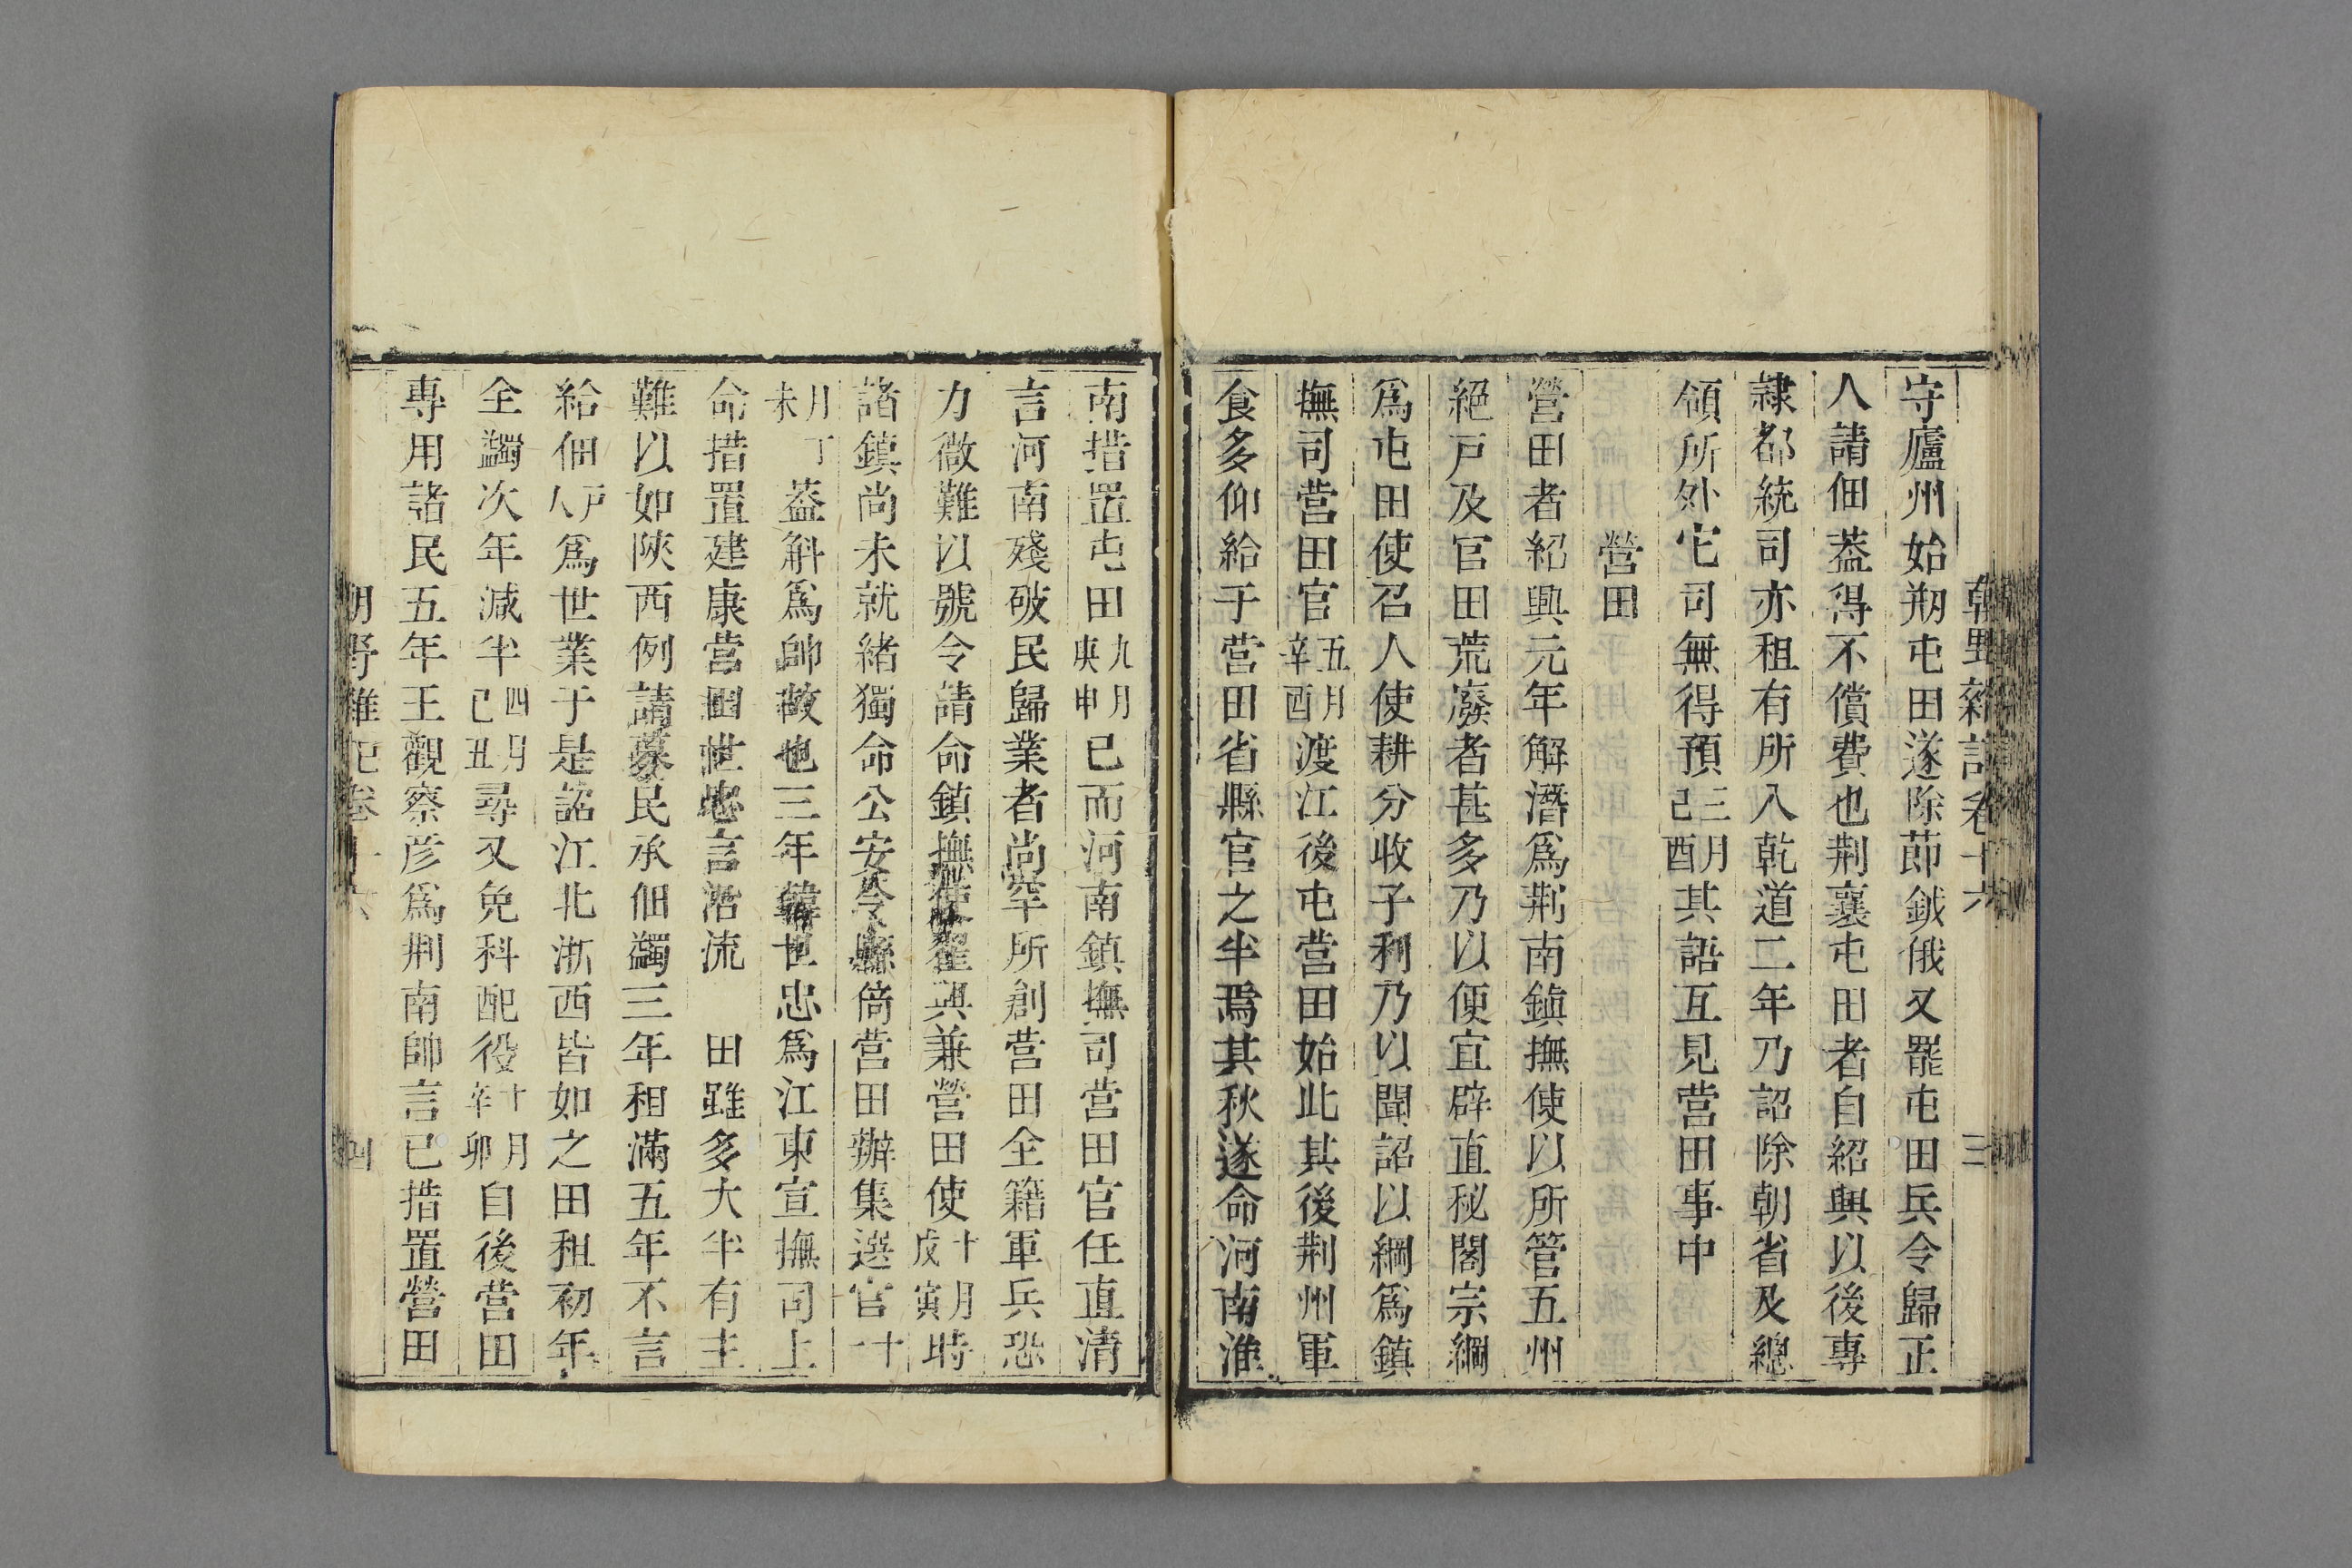 朝野雜記卷十六
三
守廬州始剙屯田遂除莭鉞俄又罷屯田兵令歸正
人請佃葢得不償費也荆襄屯田者自紹興以後專
隸都統司亦租有所入乾道二年乃詔除朝省及總
領所外它司無得預三月己酉其語互見營田事中
營田
營田者紹興元年解潛爲荆南鎮撫使以所管五州
絕戸及官田荒廢者甚多乃以便宜辟直秘閣宗綱
爲屯田使召人使耕分收子利乃以聞詔以綱爲鎮
撫司营田官五月辛酉渡江後屯营田始此其後荆州軍
食多仰給于营田省縣官之半焉其秋遂命河南淮
南措置屯田九月庚申已而河南鎮撫司营田官任直清
言河南殘破民歸業者尚罕所創营田全籍軍兵恐
力微難以號令請命鎮撫使翟興兼營田使十月戊寅時
諸鎮尚未就緒獨命公安令縣倚营田辦集選官十一
月丁未葢斛爲帥故也三年韓世忠爲江東宣撫司上
命措置建康营田世忠言沿流田雖多大半有主
難以如陜西例請募民承佃蠲三年租滿五年不言
給佃戸人爲世業于是詔江北浙西皆如之田租初年
全蠲次年減半四月己丑尋又免科配役十月辛卯自後营田
專用諸民五年王觀察彦爲荆南帥言已措置營田
朝野雜記卷十六
四